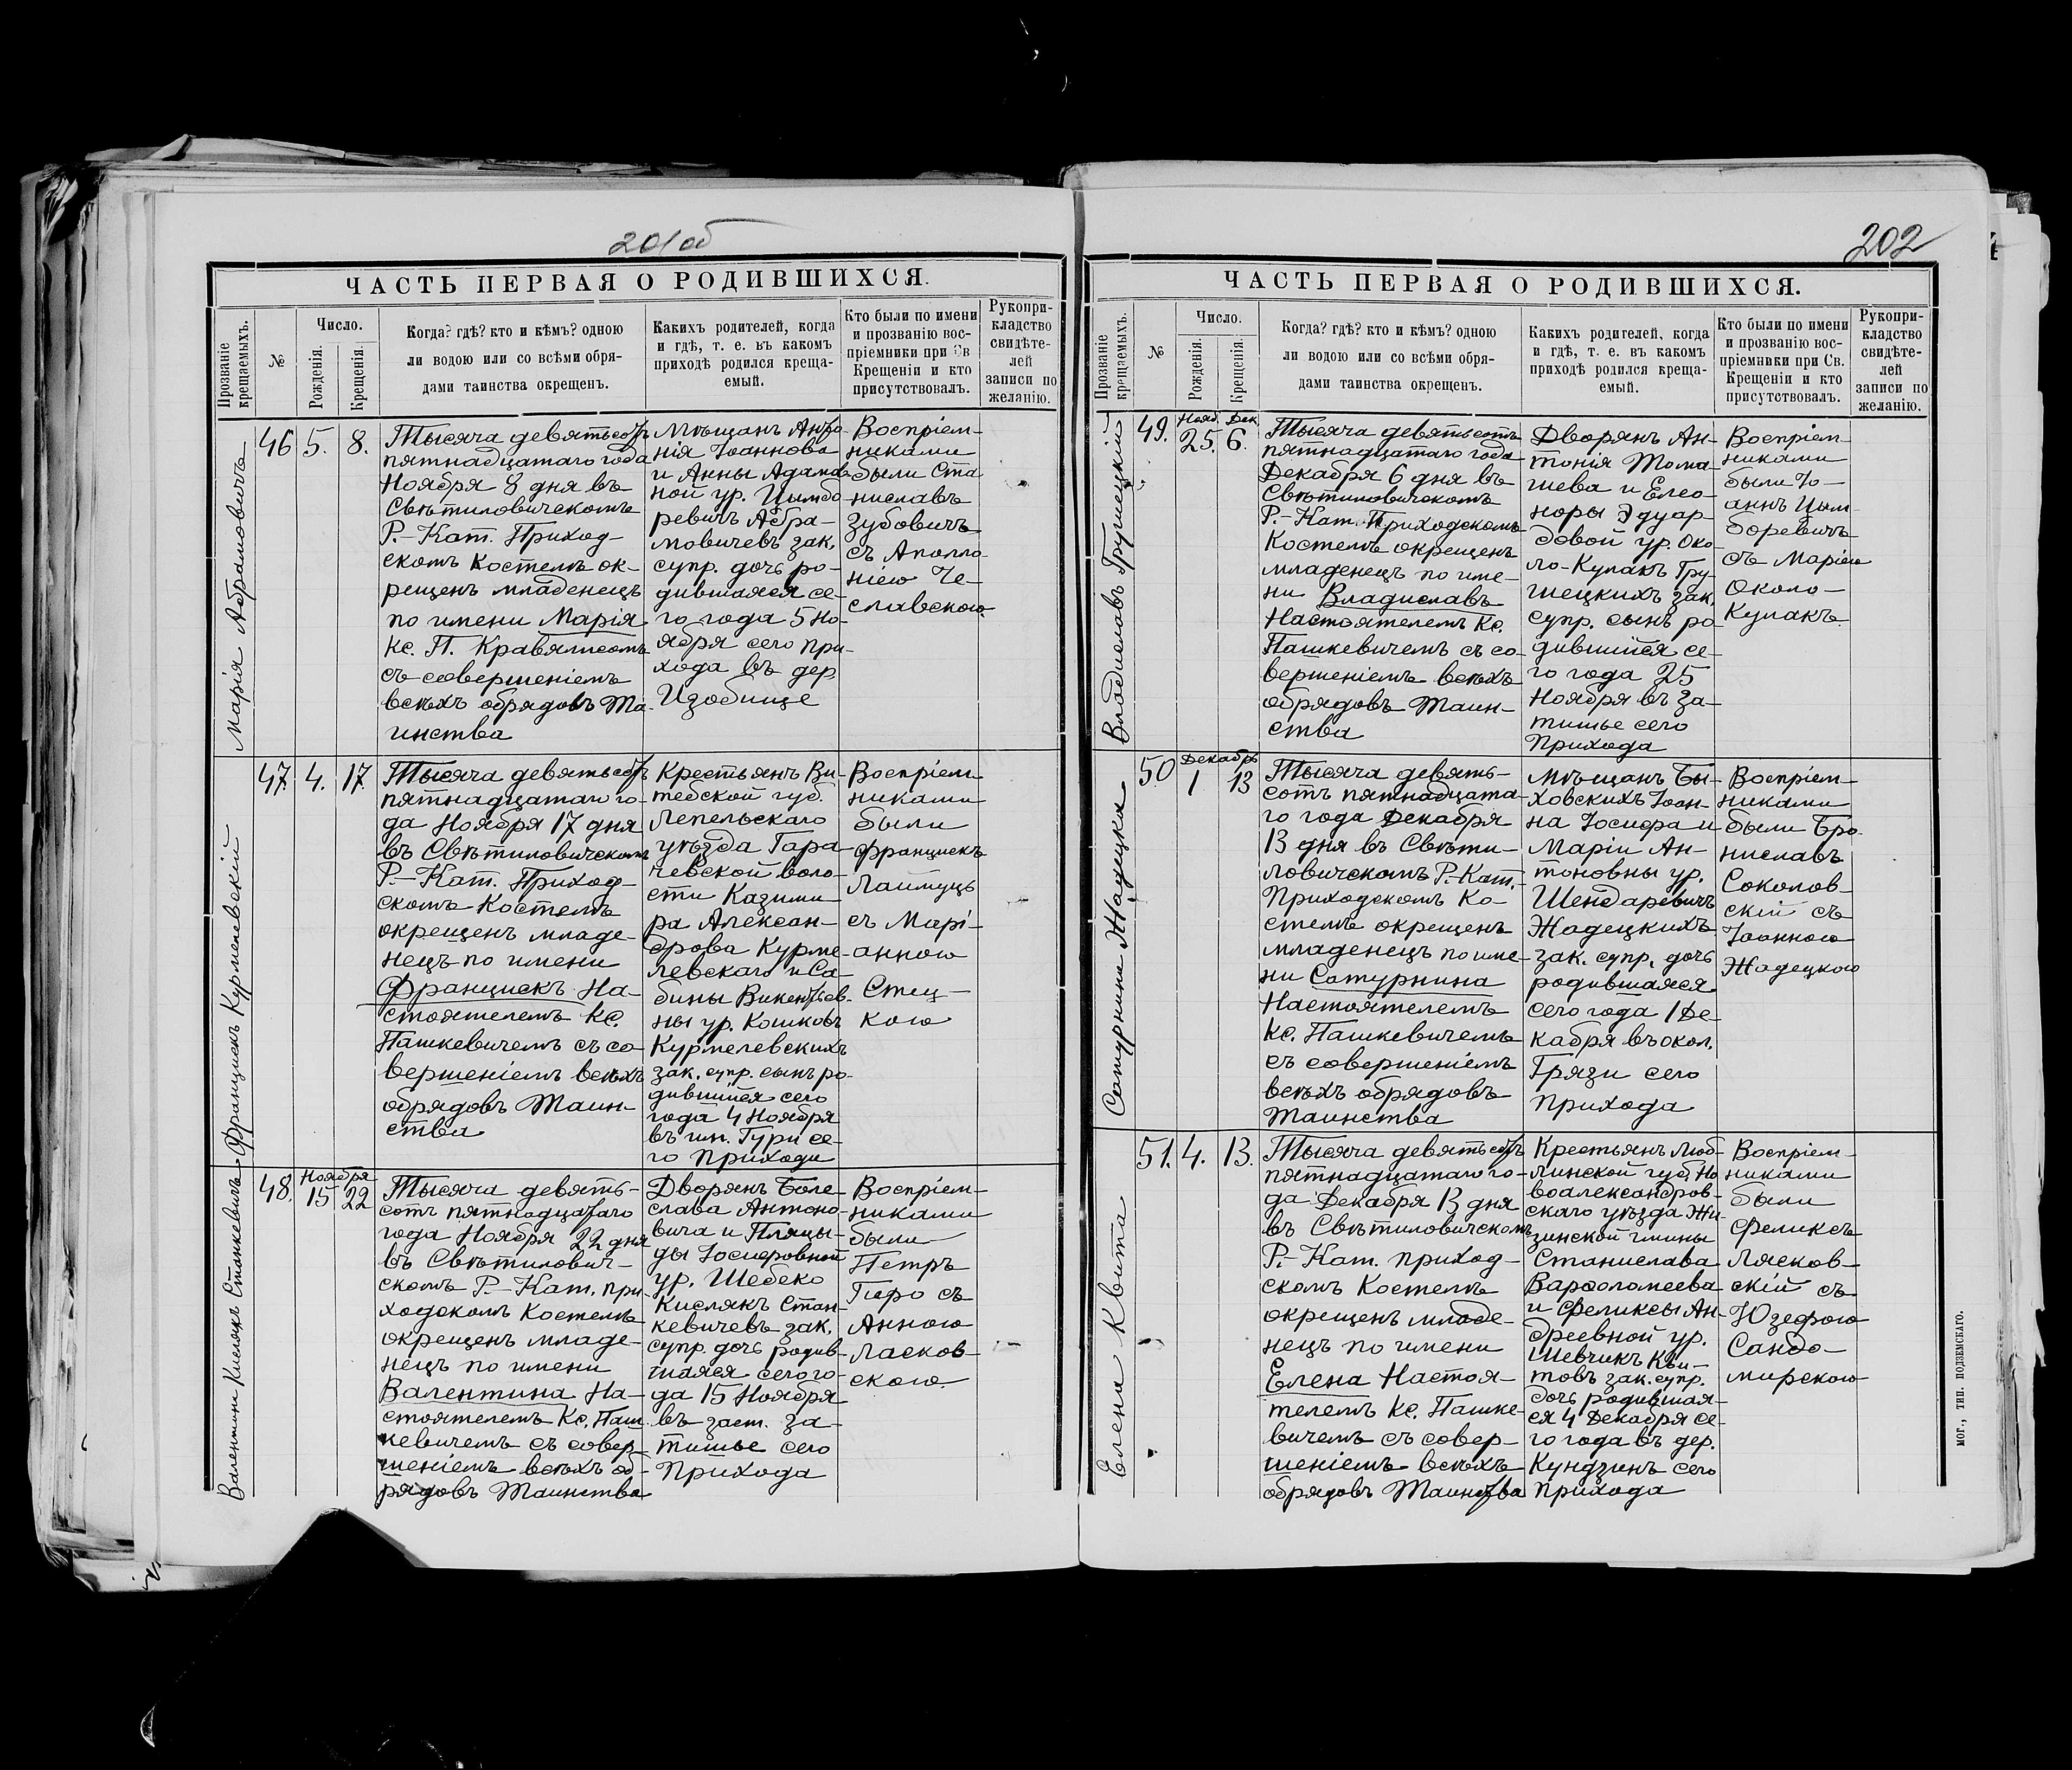 201об
ЧАСТЬ ПЕРВАЯ О РОДИВШИХСЯ.
Прозваніе крещаемыхъ.
№
Число.
Рожденія.
Крещенія.
Когда? гдѣ? кто и кѣмъ? одною
ли водою или со всѣми обря-
дами таинства окрещенъ.
Какихъ родителей, когда
и гдѣ, т. е. въ какомъ
приходѣ родился креща-
емый.
Кто были по имени
и прозванію вос-
пріемники при Св
Крещеніи и кто
присутствовалъ.
Рукопри-
кладство
свидѣте-
лей
записи по
желанію.
Марія Абрамовичъ
46
5.
8.
Тысяча девятьсотъ
пятнадцатаго года
Ноября 8 дня въ
Свѣтиловичскомъ
Р.-Кат. Приход-
скомъ Костелѣ ок-
рещенъ младенецъ
по имени Марія
Кс. П.
съ совершеніемъ
всѣхъ обрядовъ Та-
инства
Мѣщанъ Анто-
нія Іоаннова
и Анны Адамов-
ной ур. Цымбо
ревичъ Абра-
мовичевъ зак.
супр. дочь ро-
дившаяся се-
го года 5 Но-
ября сего при-
хода въ дер
Изобище
Воспріем-
никами
были Ста
ниславъ
Зубовичъ
съ Аполло-
ніею Че-
славскою
Францискъ Курмелевскій
47.
4.
17.
Тысяча девятьсотъ
пятнадцатаго го-
да Ноября 17 дня
въ Свѣтиловичскомъ
Р.-Кат. Приход-
скомъ Костелѣ
окрещенъ младе-
нецъ по имени
Францискъ На-
стоятелемъ Кс.
Пашкевичемъ съ со-
вершеніемъ всѣхъ
обрядовъ Таин-
ства
Крестьянъ Ви-
тебской губ.
Лепельскаго
уѣзда Гара-
чевской воло-
сти Казими-
ра Алексан-
дрова Курме-
левскаго и Са-
бины Викентьев-
ны ур. Кошковъ
Курмелевскихъ
зак. супр. сынъ ро-
дившійся сего
года 4 Ноября
въ им. Гури се-
го Прихода
Воспріем-
никами
были
Францискъ
Лаймуцъ
съ Марі-
анною
Стец-
кою
Валентина Кислякъ Станкевичъ
48.
Ноября
15
22
Тысяча девять-
сотъ пятнадцатаго
года Ноября 22 дня
въ Свѣтилович-
скомъ Р.-Кат. при-
ходскомъ Костелѣ
окрещенъ младе-
нецъ по имени
Валентина На-
стоятелемъ Кс. Паш-
кевичемъ съ совер-
шеніемъ всѣхъ об-
рядовъ Таинства
Дворянъ Боле-
слава Антоно-
вича и Пляцы-
ды Іосифовной
ур. Шебеко
Кислякъ Стан-
кевичевъ зак.
супр. дочь родив-
шаяся сего го-
да 15 Ноября
въ заст. За-
тишье сего
Прихода
Воспріем-
никами
были
Петръ
Гиро съ
Анною
Ласков-
скою
202
ЧАСТЬ ПЕРВАЯ О РОДИВШИХСЯ.
Прозваніе крещаемыхъ.
№
Число.
Рожденія.
Крещенія.
Когда? гдѣ? кто и кѣмъ? одною
ли водою или со всѣми обря-
дами таинства окрещенъ.
Какихъ родителей, когда
и гдѣ, т. е. въ какомъ
приходѣ родился креща-
емый.
Кто были по имени
и прозванію вос-
пріемники при Св.
Крещеніи и кто
присутствовалъ.
Рукопри-
кладство
свидѣте-
лей
записи по
желанію.
Владиславъ Грушецкій
49.
Нояб.
25.
Дек
6.
Тысяча девятьсотъ
пятнадцатаго года
Декабря 6 дня въ
Свѣтиловичскомъ
Р.-Кат. Приходскомъ
Костелѣ окрещенъ
младенецъ по име-
ни Владиславъ
Настоятелемъ Кс.
Пашкевичемъ съ со-
вершеніемъ всѣхъ
обрядовъ Таин-
ства
Дворянъ Ан-
тонія Тома-
шева и Елео-
норы Эдуар-
довой ур. Око
ло-Кулакъ Гру-
шецкихъ зак.
супр. сынъ ро-
дившійся се-
го года 25
Ноября въ за-
тишье сего
Прихода
Воспріем-
никами
были Іо-
аннъ Цым
боревичъ
съ Маріею
Около-
Кулакъ
Сатурнина Жадецкая
50.
Декабрь
1
13
Тысяча девять-
сотъ пятнадцата-
го года Декабря
13 дня въ Свѣти-
ловичскомъ Р.-Кат.
Приходскомъ Ко-
стелѣ окрещенъ
младенецъ по име-
ни Сатурнина
Настоятелемъ
Кс. Пашкевичемъ
съ совершеніемъ
всѣхъ обрядовъ
Таинства
Мѣщанъ Бы-
ховскихъ Іоан-
на Іосифа и
Маріи Ан-
тоновны ур.
Шендаревичъ
Жадецкихъ
зак. супр. дочь
родившаяся
сего года 1 Де-
кабря въ окол.
Грязи сего
Прихода
Воспріем-
никами
были Бро-
ниславъ
Соколов-
скій съ
Іоанною
Жадецкою
Елена Квита
51.
4.
13.
Тысяча девятьсотъ
пятнадцатаго го-
да Декабря 13 дня
въ Свѣтиловичскомъ
Р.-Кат. приход-
скомъ Костелѣ
окрещенъ младе-
нецъ по имени
Елена Настоя-
телемъ Кс. Пашке-
вичемъ съ совер-
шеніемъ всѣхъ
обрядовъ Таинства
Крестьянъ Люб-
линской губ. Но
воалександров-
скаго уѣзда Жи-
зинской гмины
Станислава
Варфоломеева
и Феликсы Ан-
дреевной ур.
Шевчикъ Кви-
товъ зак. супр.
дочь родившая-
ся 4 Декабря се-
го года въ дер.
Кундзинъ сего
Прихода
Воспріем-
никами
были
Феликсъ
Лясков-
скій съ
Юзефою
Сандо-
мирскою
МОГ., ТИП. ПОДЗЕМСКАГО.